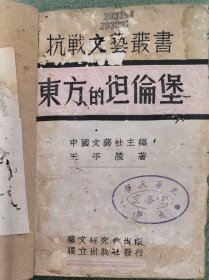 203754
抗戰文藝叢書
東方的坦倫堡
中國文藝社主編
王平陵著
藝文研究會出版
獨立出版社發行